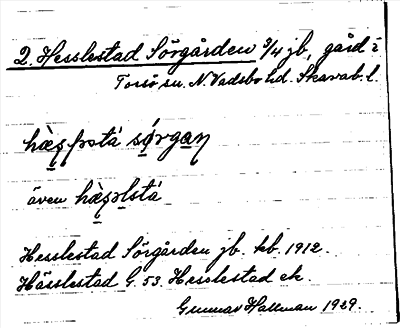 2. Hesslestad Sörgården 3/4 jb, gård i
Torsö sn. N. Vadsbo hd. Skarab. l.
sórgaṇ
även
Hesslestad Sörgården jb. kb. 1912.
Hässlestad G. 53. Hesslestad ek.
Gunnar Hallman 1929.